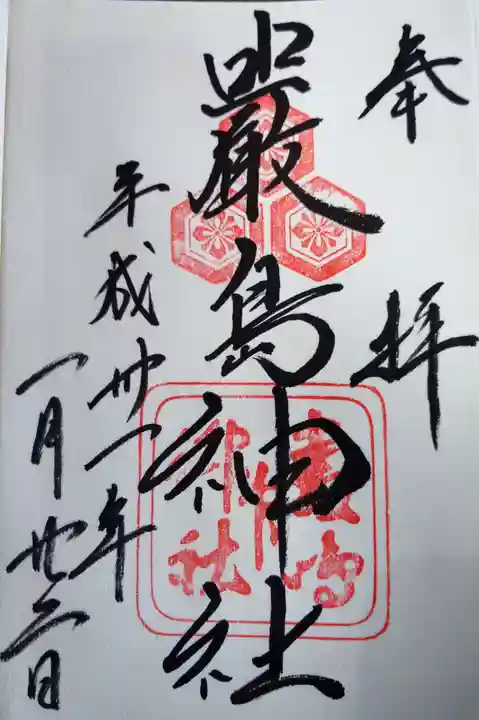 奉拝
嚴島神社
平成卅一年
一月廿三日
嚴島
神社